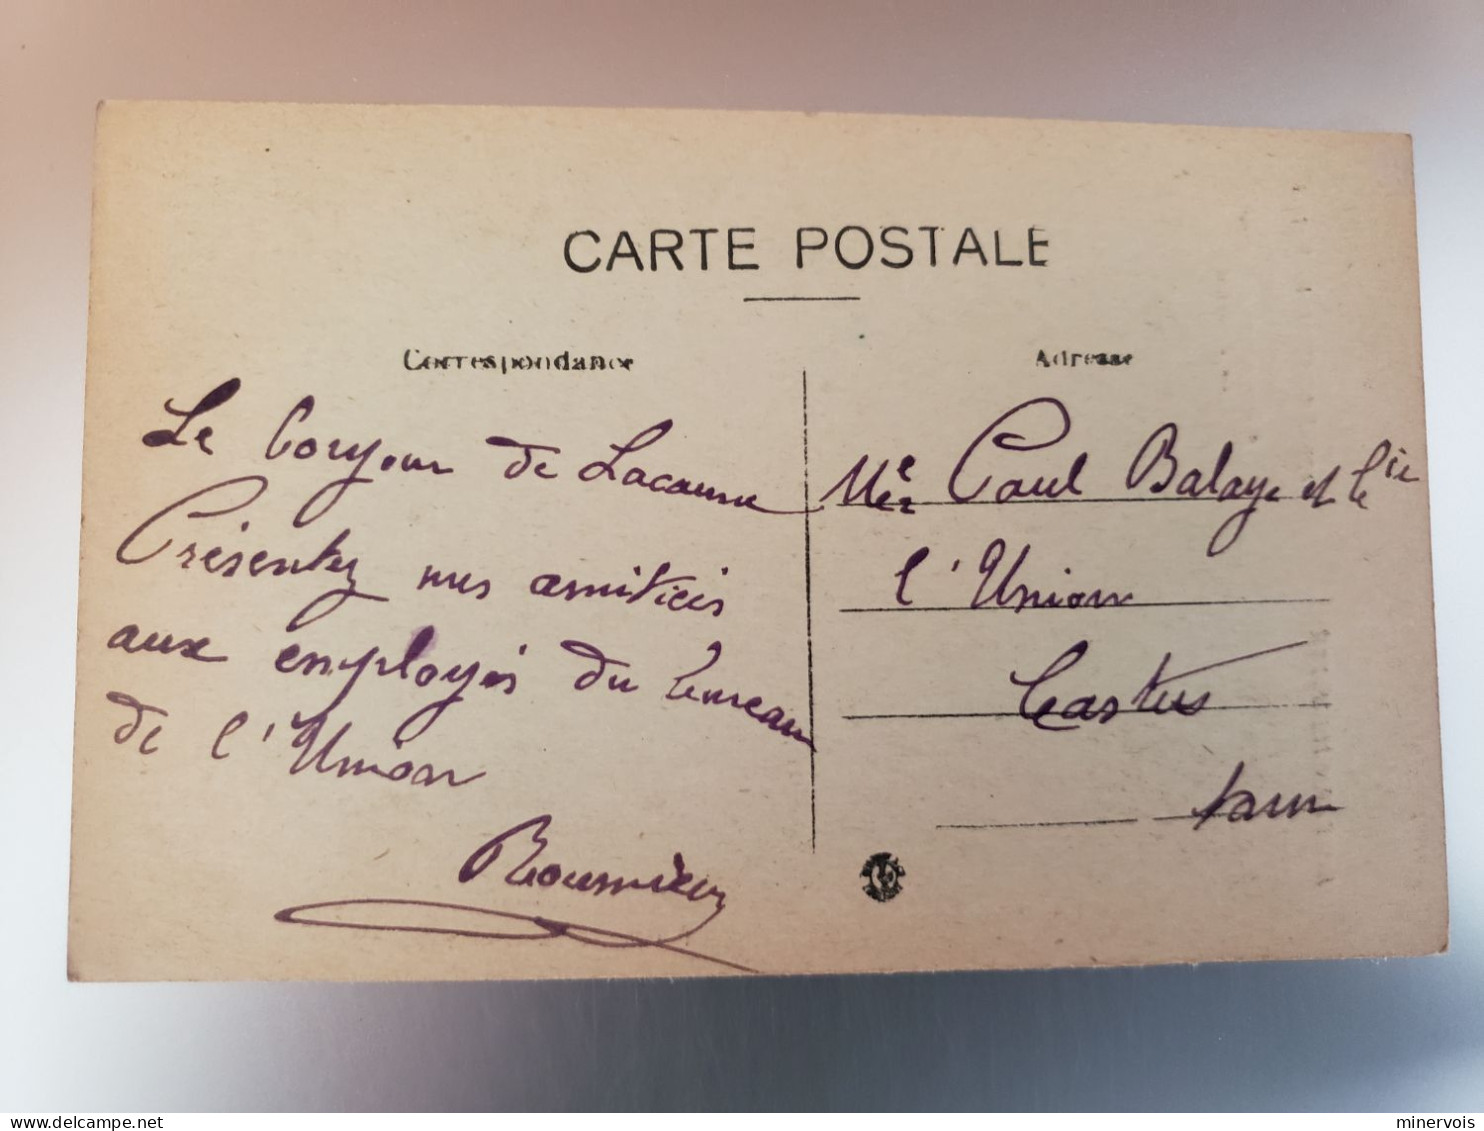 CARTE POSTALE
Correspondance
Adresse
Le bonjour de Lacaune
Présentez mes amitiés
aux employés du bureau
de l'Union
Roumieu
Paul Balaye et Cie
l'Union
Castres
Tarn
minervois